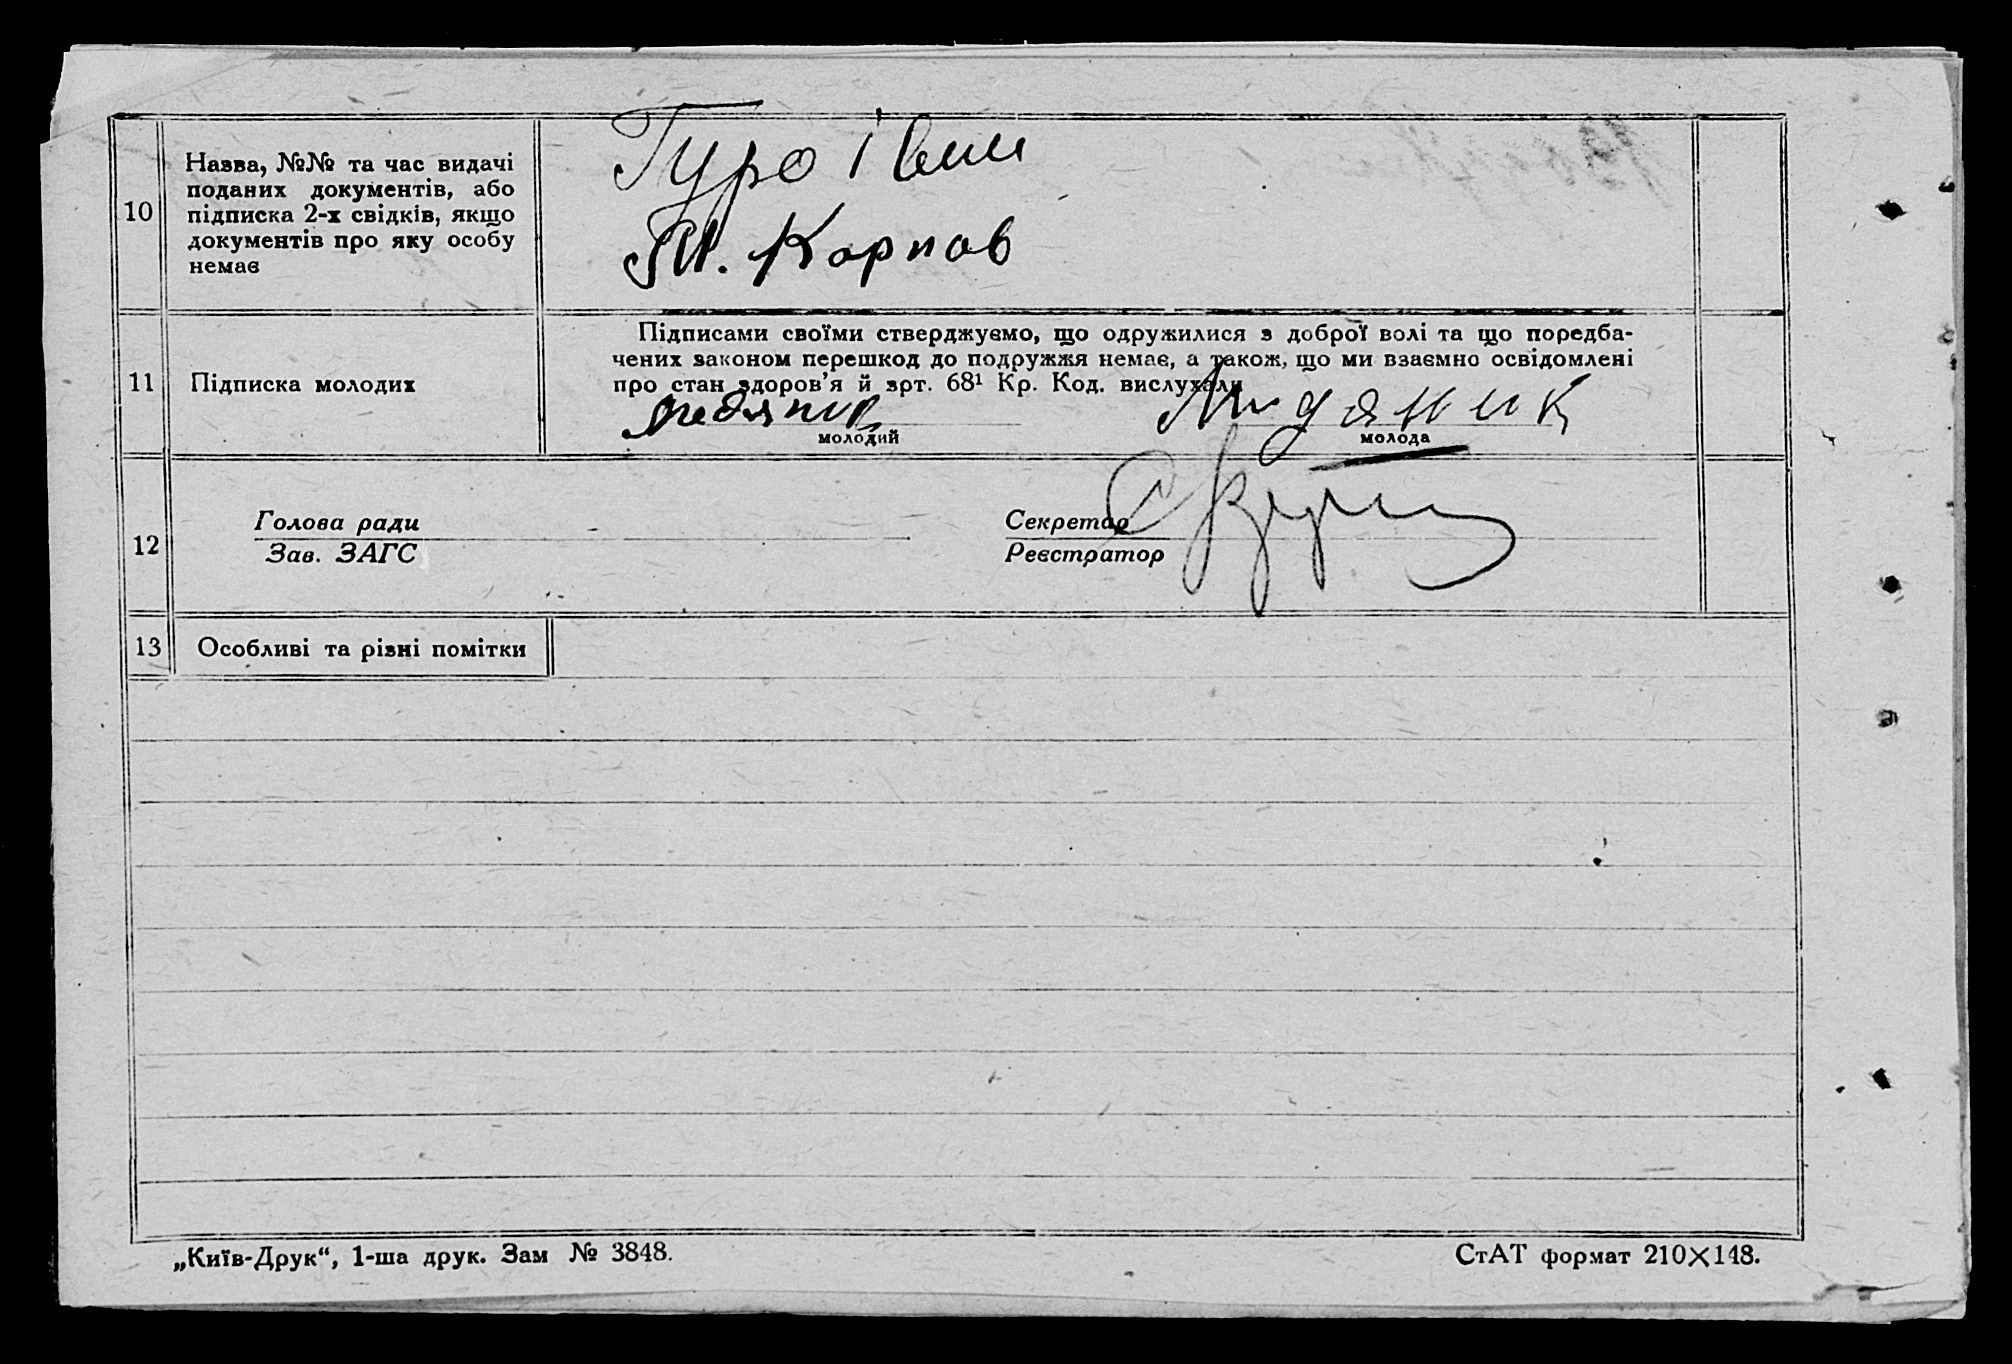 10
Назва, №№ та час видачі
поданих документів, або
підписка 2-х свідків, якщо
документів про яку особу
немає
Гуро
Карпов
11
Підписка молодих
Підписами своїми стверджуємо, що одружилися з доброї волі та що поредба-
чених законом перешкод до подружжя немає, а також, що ми взаємно освідомлені
про стан здоров’я й арт. 68¹ Кр. Код. вислухали
Мидяник
молодий
молода
12
Голова ради
Зав. ЗАГС
Секретар
Реєстратор
13
Особливі та різні помітки
„Київ-Друк“, 1-ша друк. Зам № 3848.
СтАТ формат 210×148.